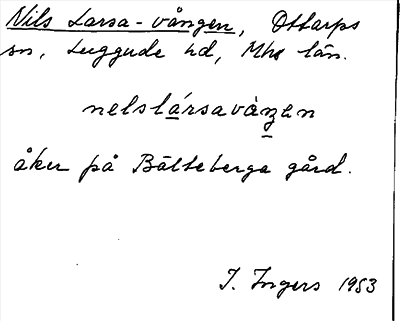 Nils Larsa-vången, Ottarps
sn, Luggude hd, Mhs län.
nelslársavàŋan
åker på Bälteberga gård.
I. Ingers 1953